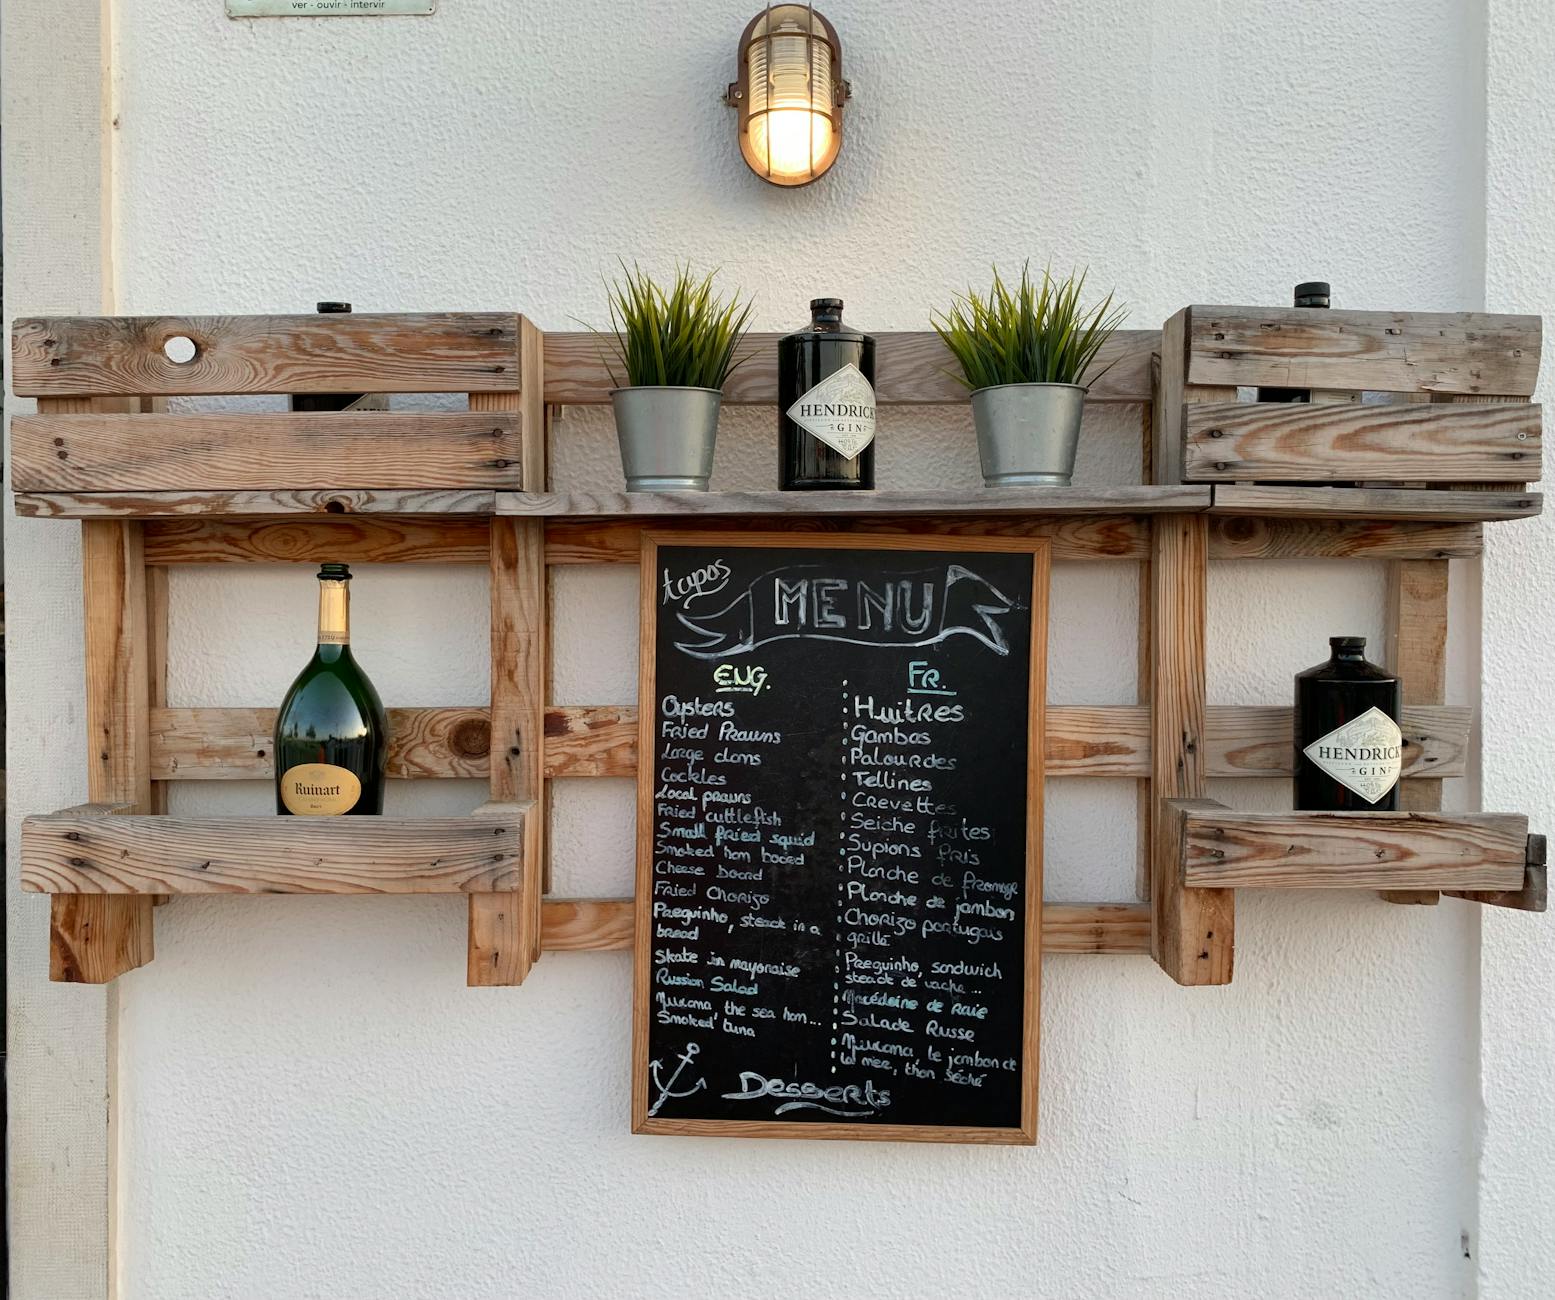 ver - ouvir - intervir
HENDRICK
GIN
Ruinart
BRUT
HENDRICK
GIN
tapas
MENU
ENG.
Oysters
Fried Prawns
Large clams
Cockles
Local prawns
Fried cuttlefish
Small fried squid
Smoked ham board
Cheese board
Fried Chorizo
Preguinho, steack in a
bread
Skate in mayonaise
Russian Salad
Muxama, the sea ham...
Smoked tuna
FR.
Huitres
Gambas
Palourdes
Tellines
Crevettes
Seiche frites
Supions fris
Planche de fromage
Planche de jambon
Chorizo portugais
grillé
Preguinho, sandwich
steack de vache...
Macédoine de raie
Salade Russe
Muxama le jambon de
la mer, thon séché
Desserts